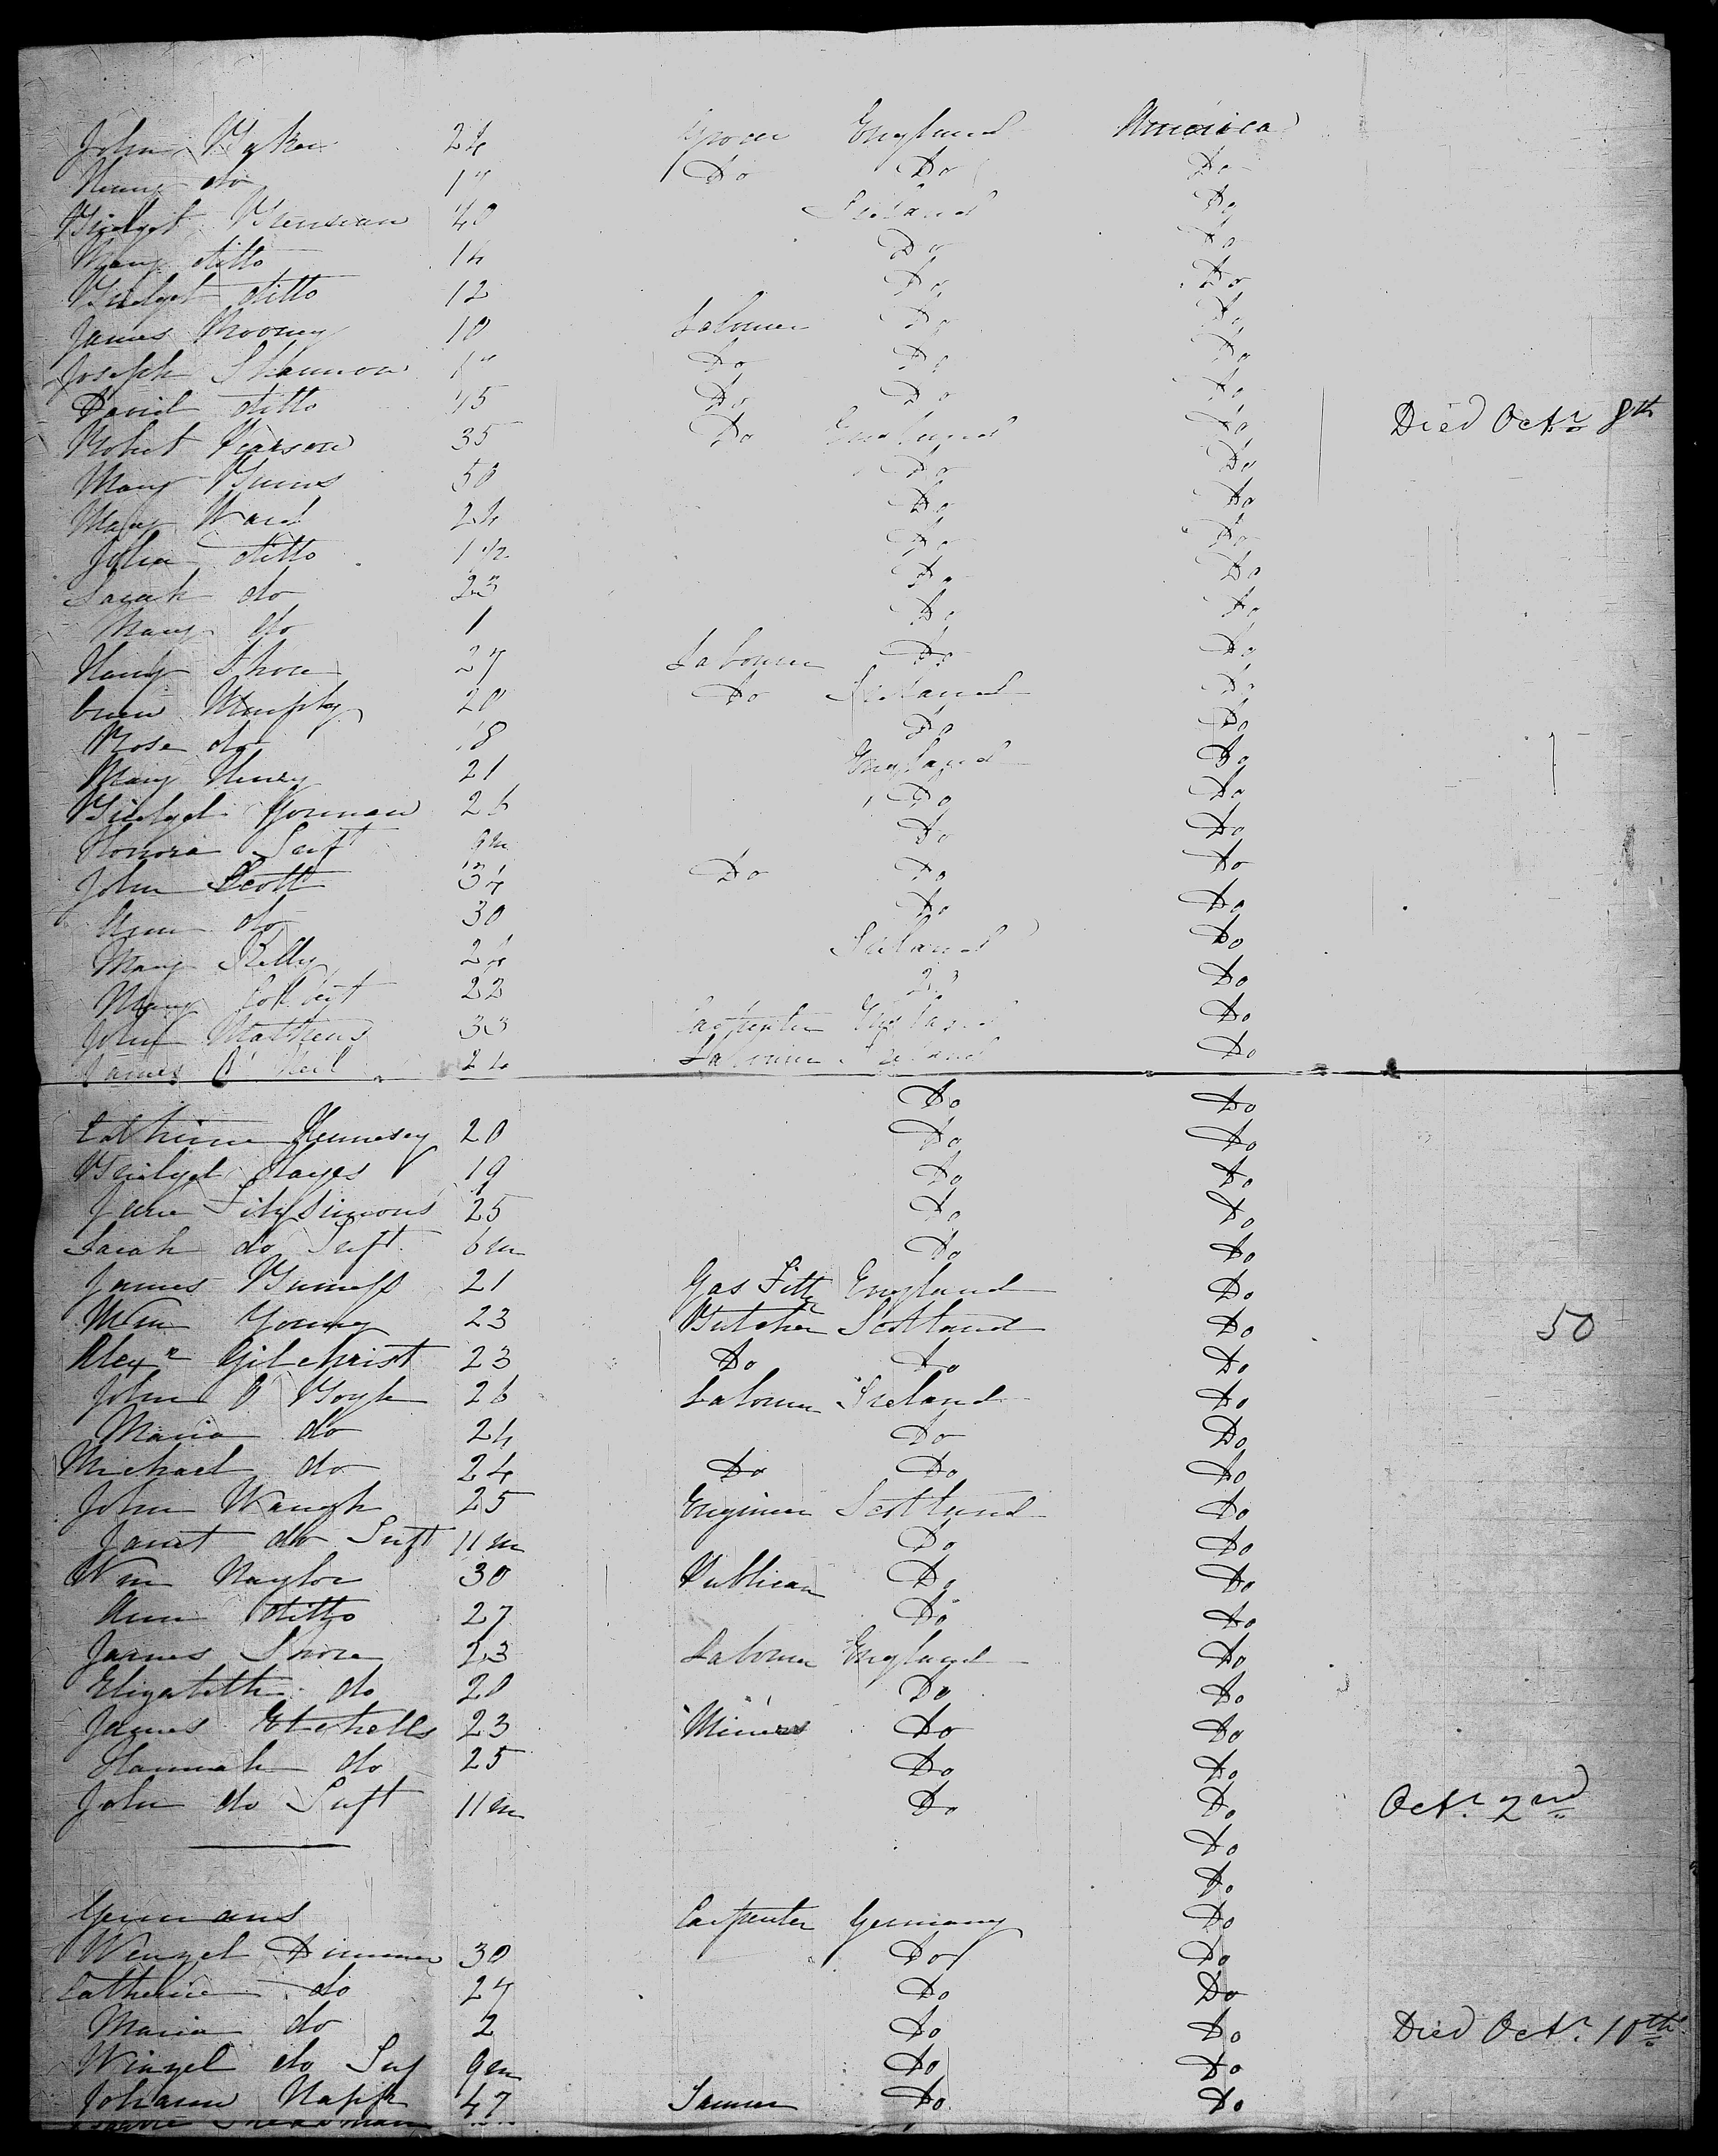 John 24 Grocer England America
do 17 Do Do Do
Bridget 40 Ireland Do
Mary ditto 14 Do Do
Bridget ditto 12 Do Do
James Mooney 18 Labourer Do Do
Joseph Shannon Do Do Do
David ditto 45 Do Do Do
Robert Pearson 35 Do England Do Died Octr 8th
Mary 50 Do Do
Mary Ward 24 Do Do
John ditto 1 1/2 Do Do
Sarah do 23 Do Do
Mary do 1 Do Do
Shore 27 Labourer Do Do
Owen Murphy 20 Do Ireland Do
Rose do 18 Do Do
Mary Henry 21 England Do
Bridget Gorman 26 Do Do
Honora Inft 9m Do Do
John Scott 34 Do Do Do
Ann do 30 Do Do
Mary Kelly 24 Ireland Do
Mary 22 Do Do
John Mathews 33 Carpenter England Do
James O'Neil 24 Labourer Ireland Do
Do Do
Cathrine Hennesey 20 Do Do
Bridget Hayes 19 Do Do
Jane Fitzsimons 25 Do Do
Sarah do Inft 6m Do Do
James 21 Gas Fitter England Do
Wm Young 23 Butcher Scotland Do 50
Alexr Gilchrist 23 Do Do Do
John O Boyle 26 Labourer Ireland Do
Maria do 24 Do Do
Michael do 24 Do Do Do
John Waugh 25 Engineer Scotland Do
Janet do Inft 11m Do Do
Wm Naylor 30 Publican Do Do
Ann ditto 27 Do Do
James Shore 23 Labourer England Do
Elizabeth do 20 Do Do
James Etchells 23 Miners Do Do
Hannah do 25 Do Do
John do Inft 11m Do Do Octr 2nd
Do
Do
Germans Carpenter Germany Do
Wenzel Dimmer 30 Do Do
Catherine do 27 Do Do
Maria do 2 Do Do Died Octr 10th
Winzel do Inf 9m Do Do
Johann 47 Do Do